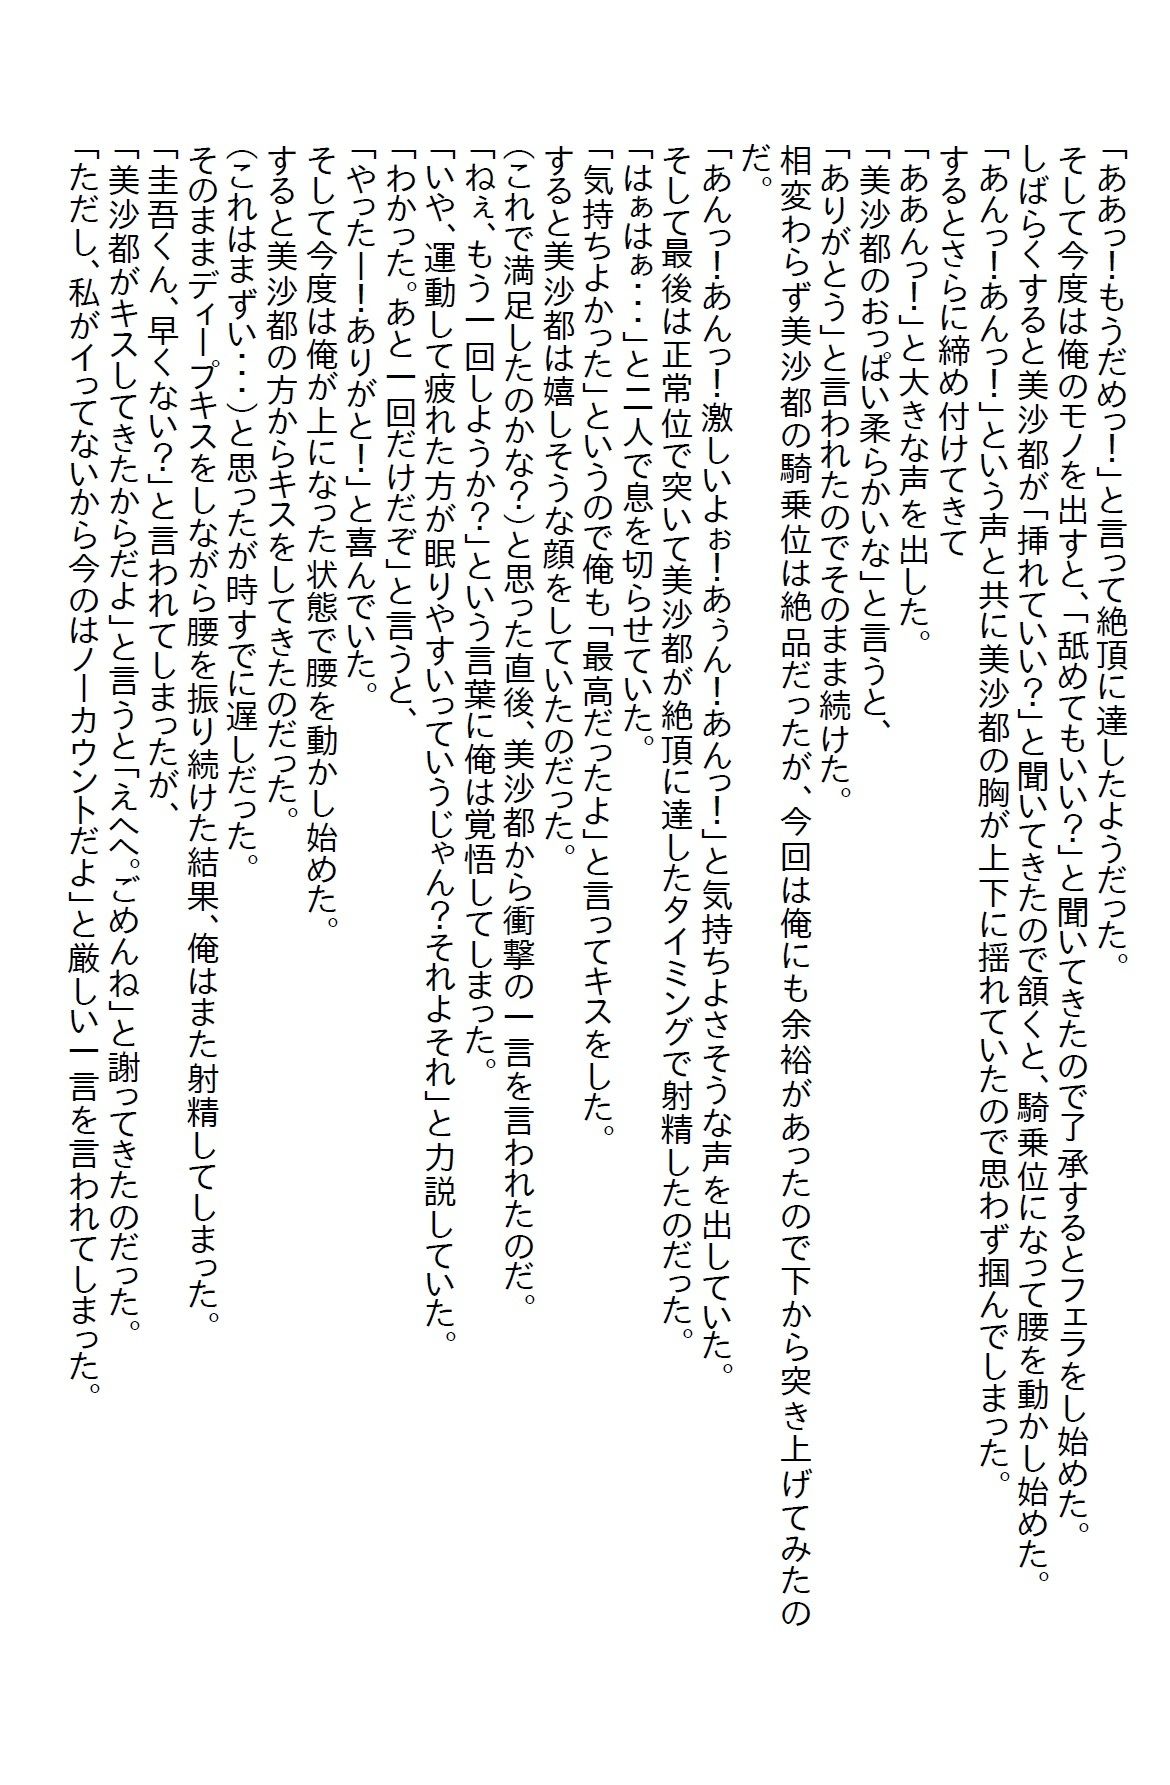 「ああっ！もうだめっ！」と言って絶頂に達したようだった。
そして今度は俺のモノを出すと、「舐めてもいい？」と聞いてきたので了承するとフェラをし始めた。
しばらくすると美沙都が「挿れていい？」と聞いてきたので頷くと、騎乗位になって腰を動かし始めた。
「あんっ！あんっ！」という声と共に美沙都の胸が上下に揺れていたので思わず掴んでしまった。
するとさらに締め付けてきて
「ああんっ！」と大きな声を出した。
「美沙都のおっぱい柔らかいな」と言うと、
「ありがとう」と言われたのでそのまま続けた。
相変わらず美沙都の騎乗位は絶品だったが、今回は俺にも余裕があったので下から突き上げてみたの
だ。
「あんっ！あんっ！激しいよぉ！あぅん！あんっ！」と気持ちよさそうな声を出していた。
そして最後は正常位で突いて美沙都が絶頂に達したタイミングで射精したのだった。
「はぁはぁ・・・」と二人で息を切らせていた。
「気持ちよかった」というので俺も「最高だったよ」と言ってキスをした。
すると美沙都は嬉しそうな顔をしていたのだった。
（これで満足したのかな？）と思った直後、美沙都から衝撃の一言を言われたのだ。
「ねぇ、もう一回しようか？」という言葉に俺は覚悟してしまった。
「いや、運動して疲れた方が眠りやすいっていうじゃん？それよそれ」と力説していた。
「わかった。あと一回だけだぞ」と言うと、
「やったー！ありがと！」と喜んでいた。
そして今度は俺が上になった状態で腰を動かし始めた。
すると美沙都の方からキスをしてきたのだった。
（これはまずい・・・）と思ったが時すでに遅しだった。
そのままディープキスをしながら腰を振り続けた結果、俺はまた射精してしまった。
「圭吾くん、早くない？」と言われてしまったが、
「美沙都がキスしてきたからだよ」と言うと「えへへ。ごめんね」と謝ってきたのだった。
「ただし、私がイってないから今のはノーカウントだよ」と厳しい一言を言われてしまった。